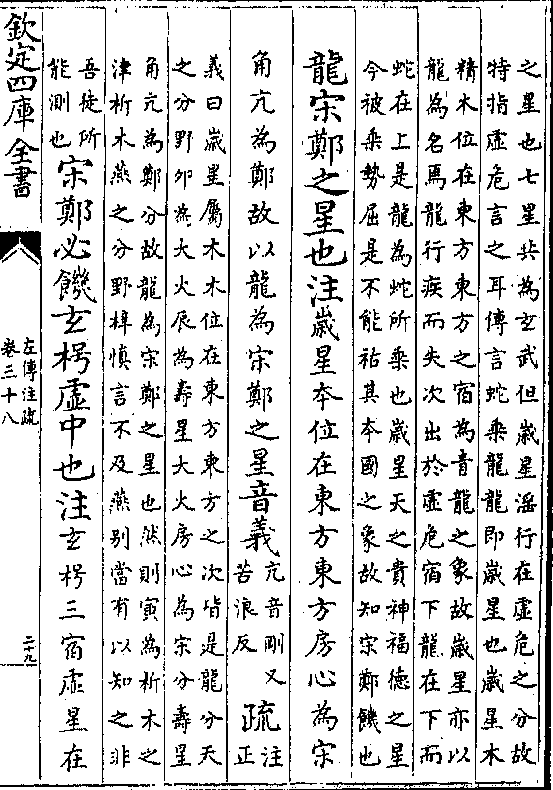 之星也七星共為玄武但歲星淫行在虛危之分故
特指虛危言之耳傳言蛇乘龍龍即歲星也歲星木
精木位在東方東方之宿為青龍之象故歲星亦以
龍為名焉龍行疾而失次出於虛危宿下龍在下而
蛇在上是龍為蛇所乘也歲星天之貴神福德之星
今被乘勢屈是不能祐其本國之象故知宋鄭饑也
龍宋鄭之星也注歲星本位在東方東方房心為宋
角亢為鄭故以龍為宋鄭之星音義亢音剛又
苦浪反
疏注
正
義曰歲星屬木木位在東方東方之次皆是龍分天
之分野卯為大火辰為壽星大火房心為宋分壽星
角亢為鄭分故龍為宋鄭之星也然則寅為析木之
津析木燕之分野梓慎言不及燕别當有以知之非
吾徒所
能測也
宋鄭必饑玄枵虛中也注玄枵三宿虛星在
欽定四庫全書
左傳注疏
卷三十八
二十九